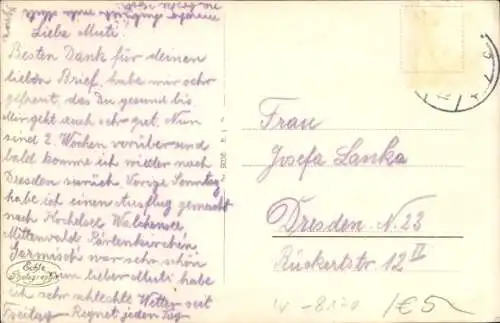 Liebe Muti!
Besten Dank für deinen
lieben Brief, habe mich sehr
gefreut, das Du gesund bis
Mir geht auch sehr gut. Nun
sind 2. Wochen vorüber und
bald komme ich wieder nach
Dresden zurück. Vorige Sonntag
habe ich einen Ausflug gemacht
nach Kochelsee Walchensee
Mittenwald Partenkirchen
Garmisch war sehr schön
lieber Muti habe
ich sehr schlechte Wetter seit
Freitag Regnet jeden Tag
Echte
Photographie
Frau
Josefa Lanka
Dresden. N. 23
Rückertstr 12 II
1€5